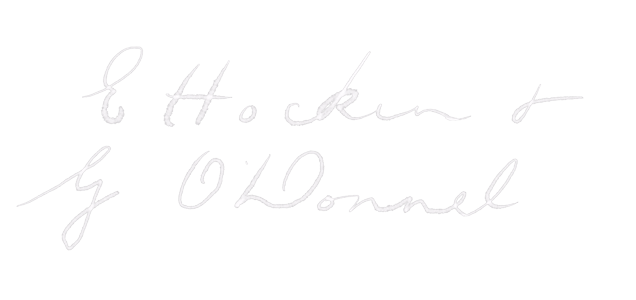 E Hocken &
G O'Donnel